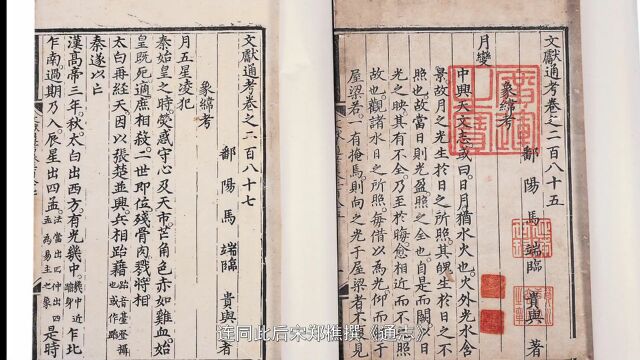 文獻通考卷之二百八十五
鄱陽馬端臨 貴與 著
象緯考
月變
中興天文志或曰日月猶水火也火外光水含
景故月之光生於日之所照其魄生於日之所
照也故當日則光盈照之全也自是而闕以日
光之映其有不全乃至於晦愈相近而不
故也觀諸水日之所照每借以為光仰而
屋梁若一有掩焉則向之光于屋梁者不見
廣運之寶
文獻通考卷之二百八十七
鄱陽馬端臨 貴與
象緯考
月五星凌犯
秦始皇之時熒惑守心及天市芒角色赤如雞血始
皇既死適庶相殺二世即位殘骨肉戮將相
太白再經天因以張楚並興兵相跆藉跆音臺登躡
秦遂以亡
漢高帝三年秋太白出西方有光幾中乍北
乍南過期乃入辰星出四孟法當出四仲出四孟為易主之象是時
连同此后宋郑樵撰《通志》